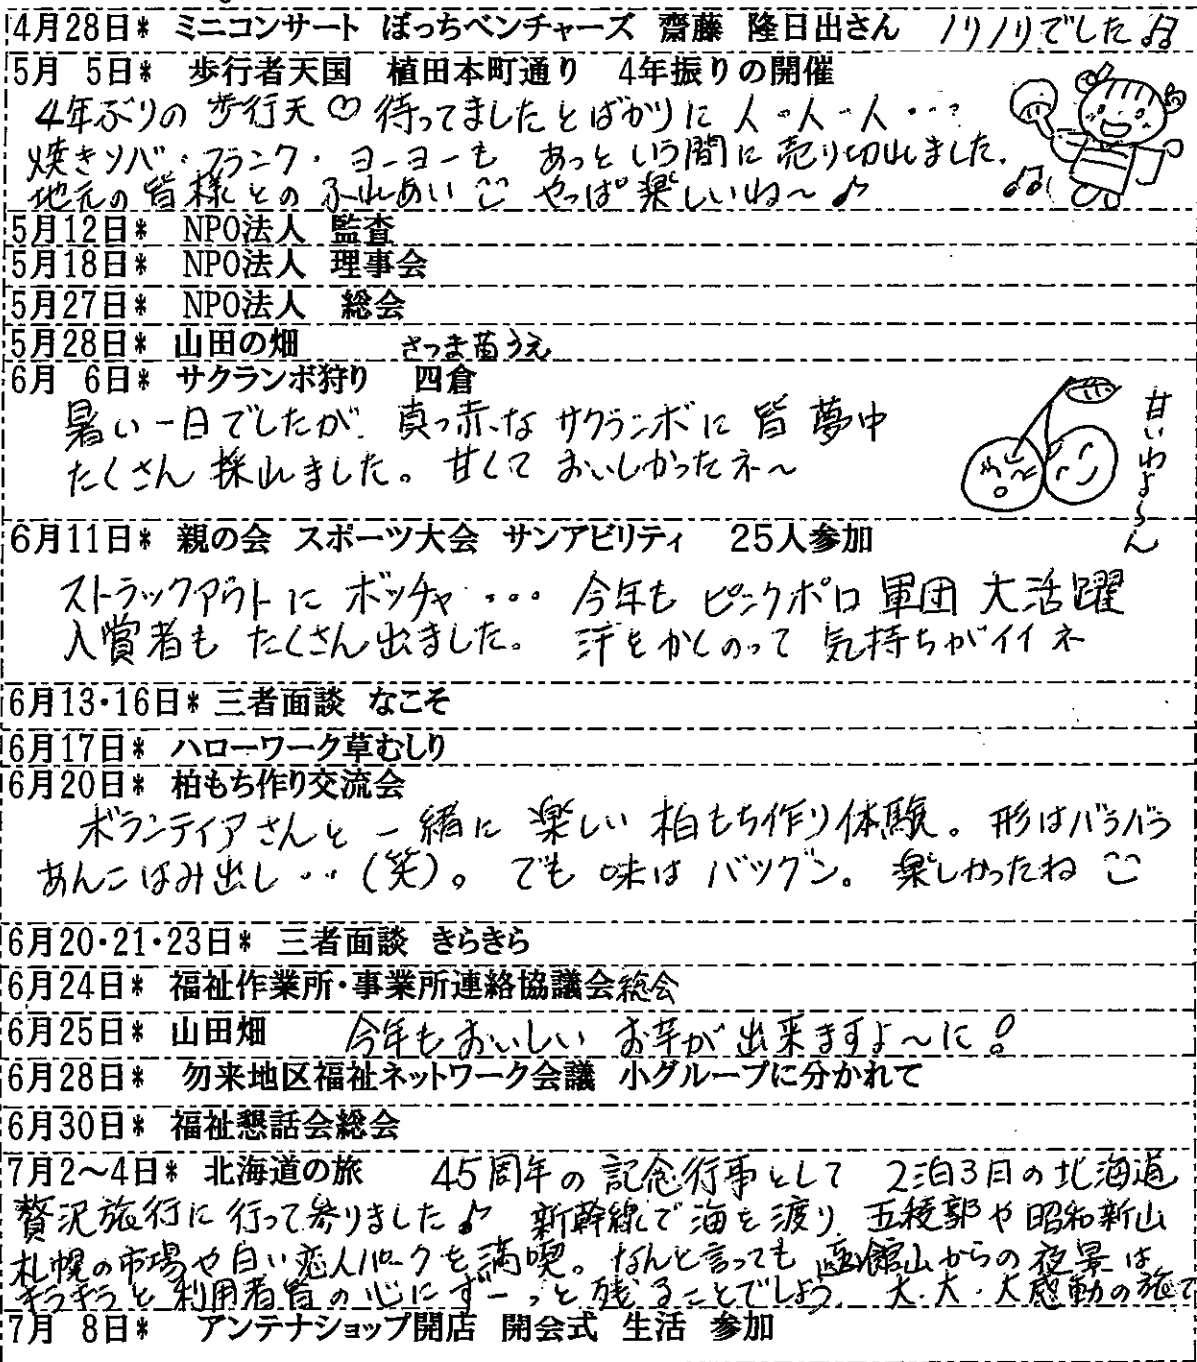 4月28日* ミニコンサート ぼっちベンチャーズ 齋藤 隆日出さん ノリノリでした♫
5月 5日* 歩行者天国 植田本町通り 4年振りの開催
4年ぶりの歩行天♡待ってましたとばかりに人・人・人・・・?
焼きソバ・フランク・ヨーヨーも あっという間に売り切れました.
地元の皆様とのふれあい やっぱ楽しいね〜♪
5月12日* NPO法人 監査
5月18日* NPO法人 理事会
5月27日* NPO法人 総会
5月28日* 山田の畑 さつま苗うえ
6月 6日* サクランボ狩り 四倉
暑い一日でしたが、真っ赤なサクランボに皆夢中
たくさん採れました。甘くておいしかったネ〜
甘いわよ〜ん
6月11日* 親の会 スポーツ大会 サンアビリティ 25人参加
ストラックアウトにボッチャ・・・今年もピンクポロ軍団大活躍
入賞者もたくさん出ました。汗をかくのって気持ちがイイネ
6月13・16日* 三者面談 なこそ
6月17日* ハローワーク草むしり
6月20日* 柏もち作り交流会
ボランティアさんと一緒に楽しい柏もち作り体験。形はバラバラ
あんこはみ出し・・(笑)。でも味はバツグン。楽しかったね
6月20・21・23日* 三者面談 きらきら
6月24日* 福祉作業所・事業所連絡協議会総会
6月25日* 山田畑 今年もおいしいお芋が出来ますよ〜に!
6月28日* 勿来地区福祉ネットワーク会議 小グループに分かれて
6月30日* 福祉懇話会総会
7月2〜4日* 北海道の旅 45周年の記念行事として 2泊3日の北海道
贅沢旅行に行って参りました♪ 新幹線で海を渡り、五稜郭や昭和新山
札幌の市場や白い恋人パークを満喫。なんと言っても函館山からの夜景は
キラキラと利用者皆の心にずーっと残ることでしょう. 大・大・大感動の旅で
7月 8日* アンテナショップ開店 開会式 生活 参加